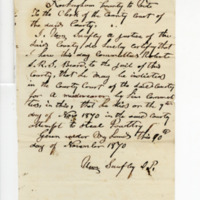 Rockingham County to Wit:
To the Clerk of the County Court of
the said County:
I, Henry Sunfly a Justice of the
said County, do hereby certify that
I have this day committed
to the jail of this
County, that he may be indicted
in the County Court of the said County
for a misdemeanor by him committed
in this, that he did on the 9th
day of Nov. 1870 in the said County
attempt to steal
Given under my hand this 10th
day of November 1870
Henry Sunfly J.P.